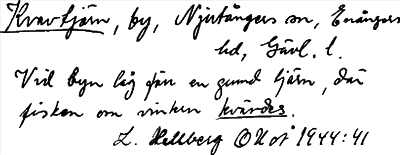 Kvavtjärn, by, Njutångers sn, Enångers
hd, Gävl. l.
Vid byn låg förr en grund tjärn, där
fisken om vintern kvävdes.
L. Hellberg OUoÅ 1944:41